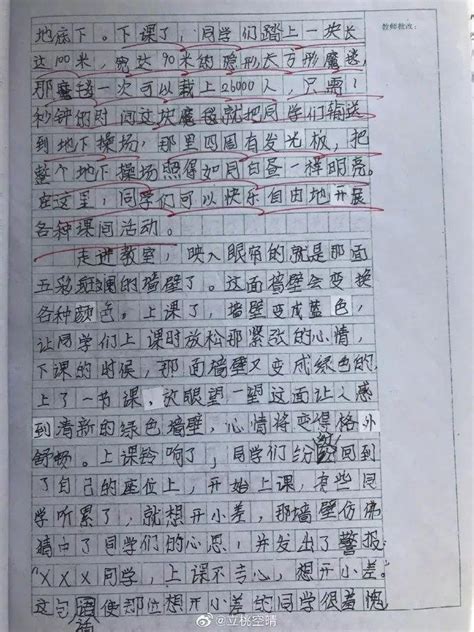 教师批改:
地底下。下课了,同学们踏上一块长
达100米,宽达90米的隐形长方形魔毯,
那魔毯一次可以载上26000人,只需1
秒钟的时间这块魔毯就把同学们输送
到地下操场,那里四周有发光板,把
整个地下操场照得如同白昼一样明亮。
在这里,同学们可以快乐自由地开展
各种课间活动。
走进教室,映入眼帘的就是那面
五彩斑斓的墙壁了。这面墙壁会变换
各种颜色。上课了,墙壁变成蓝色,
让同学们上课时放松那紧张的心情,
下课的时候,那面墙壁又变成绿色的
上了一节课,放眼望一望这面让人感
到清新的绿色墙壁,心情将变得格外
舒畅。上课铃响了,同学们纷纷回到
了自己的座位上,开始上课,有些同
学听累了,就想开小差,那墙壁仿佛
猜中了同学们的心思,并发出了警报:
“XXX同学,上课不专心,想开小差。”
这句话使那位想开小差的同学很羞愧
@立桃空晴